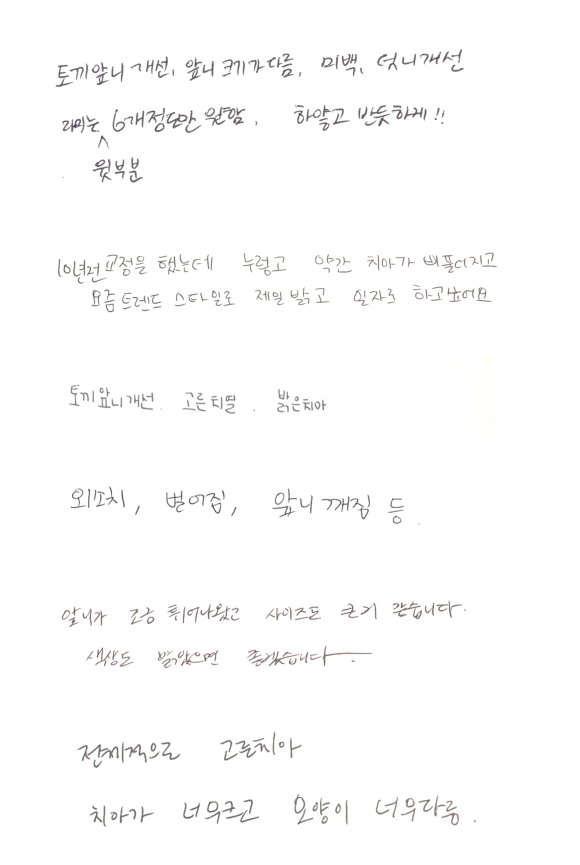 토끼앞니 개선, 앞니 크기가 다름, 미백, 덧니개선
라미는 6개정도만 원함, 하얗고 반듯하게!!
윗부분
10년전 교정을 했는데 누렇고 약간 치아가 삐뚤어지고
요즘트렌드 스타일로 제일 밝고 일자로 하고싶어요
토끼앞니개선. 고른치열. 밝은치아
왜소치, 벌어짐, 앞니 깨짐 등.
앞니가 조금 튀어나왔고 사이즈도 큰거 같습니다.
색상도 밝았으면 좋겠습니다.
전체적으로 고른치아
치아가 너무크고 모양이 너무다름.